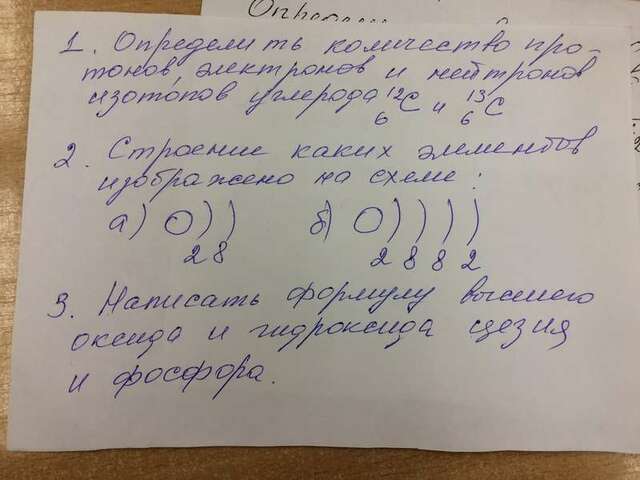 Опреде
1. Определить количество про-
тонов, электронов и нейтронов
изотопов углерода ¹²₆C и ¹³₆C
2. Строение каких элементов
изображено на схеме:
а) ○)) б) ○))))
2 8 2 8 8 2
3. Написать формулу высшего
оксида и гидроксида цезия
и фосфора.